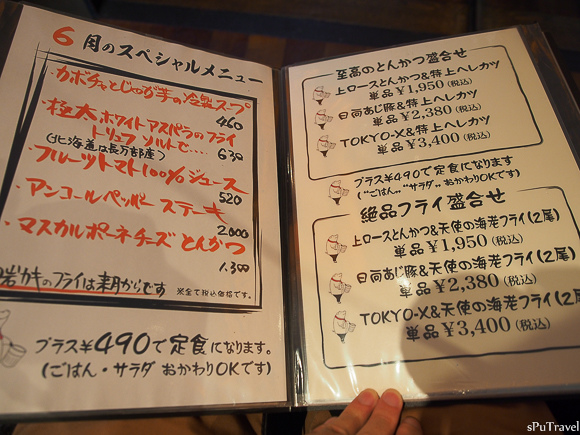 6月のスペシャルメニュー
・カボチャとじゃが芋の冷製スープ
460
・極太ホワイトアスパラのフライ
トリュフソルトで‥‥
(北海道は長万部産) 630
・フルーツトマト100%ジュース
520
・アンコールペッパーステーキ
2,000
・マスカルポーネチーズとんかつ
1,300
岩ガキのフライは来月からです
※全て税込価格です。
プラス¥490で定食になります。
(ごはん・サラダ おかわりOKです)
至高のとんかつ盛合せ
上ロースとんかつ&特上ヘレカツ
単品¥1,950(税込)
日向あじ豚&特上ヘレカツ
単品¥2,380(税込)
TOKYO-X&特上ヘレカツ
単品¥3,400(税込)
プラス¥490で定食になります
("ごはん" "サラダ" おかわりOKです)
絶品フライ盛合せ
上ロースとんかつ&天使の海老フライ(2尾)
単品¥1,950(税込)
日向あじ豚&天使の海老フライ(2尾)
単品¥2,380(税込)
TOKYO-X&天使の海老フライ(2尾)
単品¥3,400(税込)
sPuTravel